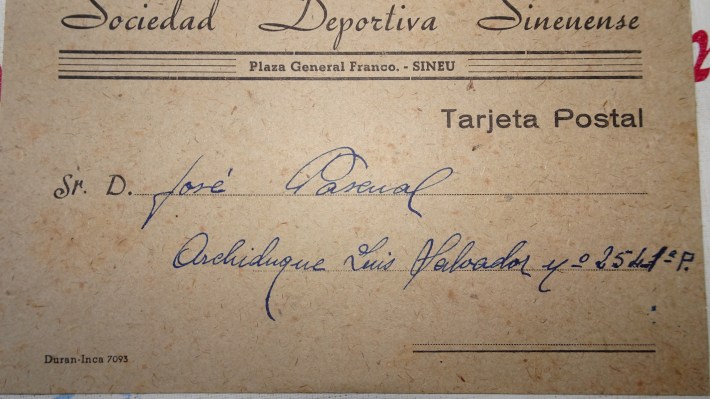 Sociedad Deportiva Sineuense
Plaza General Franco. - SINEU
Tarjeta Postal
Sr. D. José Pascual
Archiduque Luis Salvador nº 254 1º P.
Duran-Inca 7093